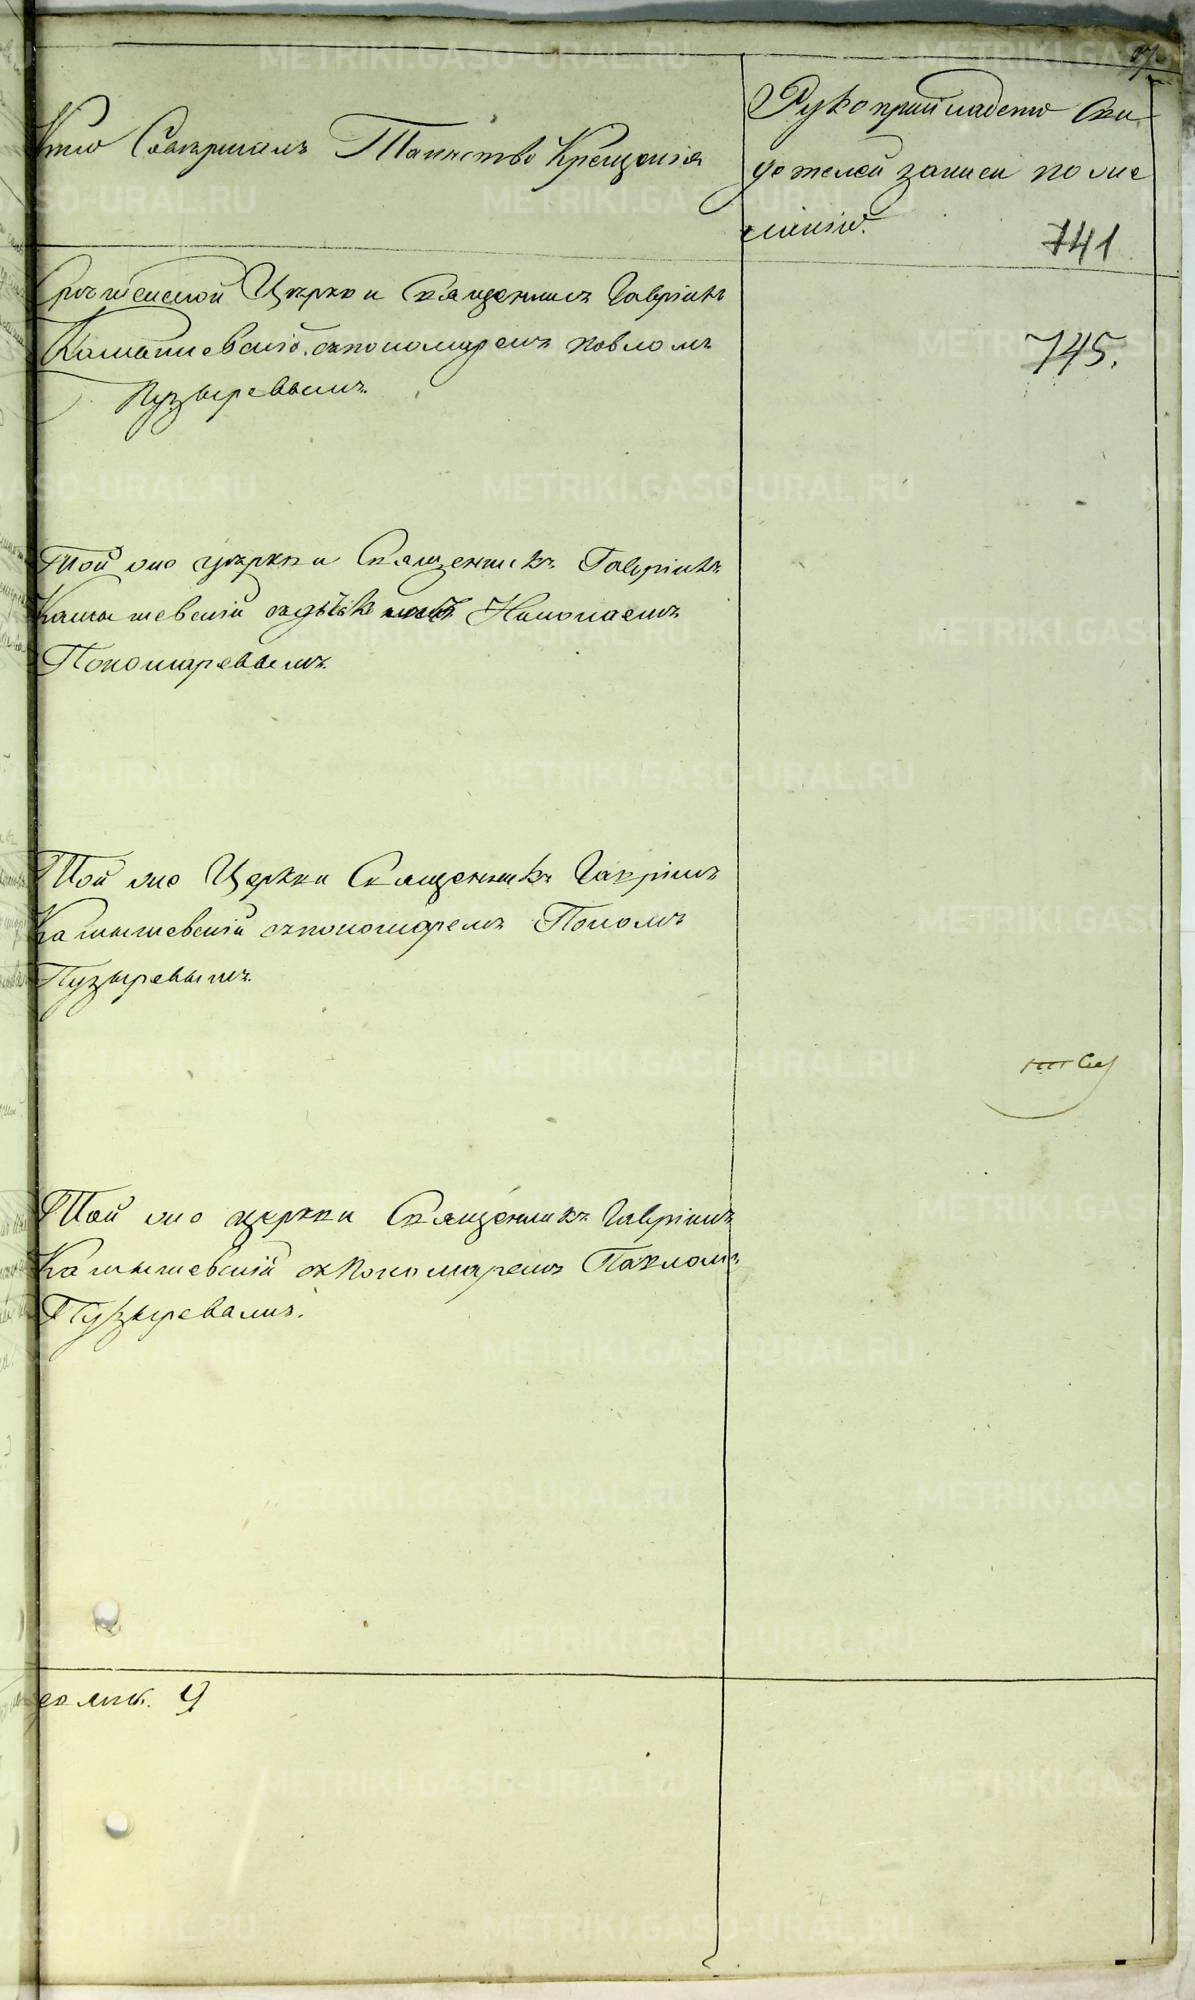 Кто Совершалъ Таинство Крещенія
Рукоприкладство Сви
детелей записи по же
ланію.
741
Срѣтенской Церкви Священникъ Гавріилъ
Камышевскій съ пономаремъ Павломъ
Пузыревымъ.
745.
Той же церкви Священникъ Гавріилъ
Камышевскій съ Николаемъ
Пономаревымъ.
Той же Церкви Священникъ Гавріилъ
Камышевскій съ пономаремъ
Пузыревымъ.
Той же церкви Священникъ Гавріилъ
Камышевскій съ Пономаремъ Павломъ
Пузыревымъ.
METRIKI.GASO-URAL.RU